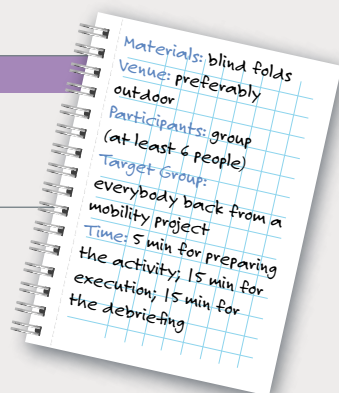 Materials: blind folds
Venue: preferably
outdoor
Participants: group
(at least 6 people)
Target Group:
everybody back from a
mobility project
Time: 5 min for preparing
the activity; 15 min for
execution; 15 min for
the debriefing